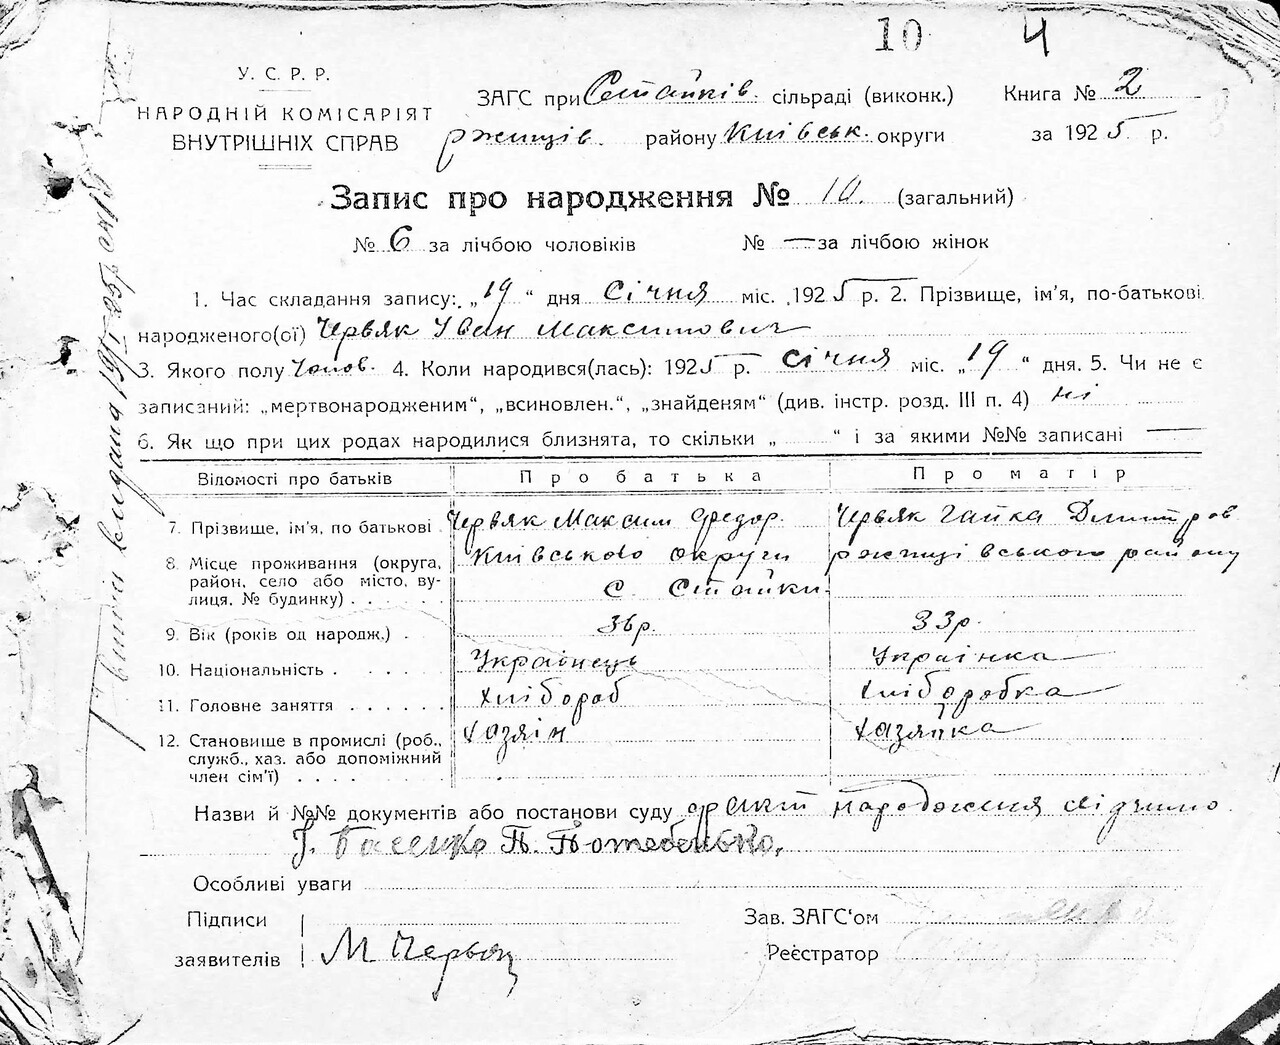 10 4
У. С. Р. Р.
НАРОДНІЙ КОМІСАРІЯТ
ВНУТРІШНІХ СПРАВ
ЗАГС при Стайків. сільраді (виконк.)
ржищів. району Київськ. округи
Книга № 2
за 1925 р.
Запис про народження № 10. (загальний)
№ 6 за лічбою чоловіків № — за лічбою жінок
1. Час складання запису: „19“ дня Січня міс. 1925 р. 2. Прізвище, ім'я, по-батькові
народженого(ої) Червяк Іван Максимович
3. Якого полу Чолов. 4. Коли народився(лась): 1925 р. січня міс. „19“ дня. 5. Чи не є
записаний: „мертвонародженим“, „всиновлен.“, „знайденям“ (див. інстр. розд. III п. 4) ні
6. Як що при цих родах народилися близнята, то скільки „ “ і за якими №№ записані —
Відомості про батьків Про батька Про матір
7. Прізвище, ім'я, по батькові Червяк Максим Федор. Червяк Гапка Дмитров
8. Місце проживання (округа, район, село або місто, вулиця, № будинку) Київського округи ржищівського району
с. Стайки
9. Вік (років од народж.) 36р. 33р.
10. Національність Українець Українка
11. Головне заняття Хлібороб Хліборобка
12. Становище в промислі (роб., служб., хаз. або допоміжний член сім'ї) Хазяїн Хазяйка
Назви й №№ документів або постанови суду народження
Потебенько.
Особливі уваги
Підписи
заявителів М Червяк
Зав. ЗАГС'ом
Реєстратор